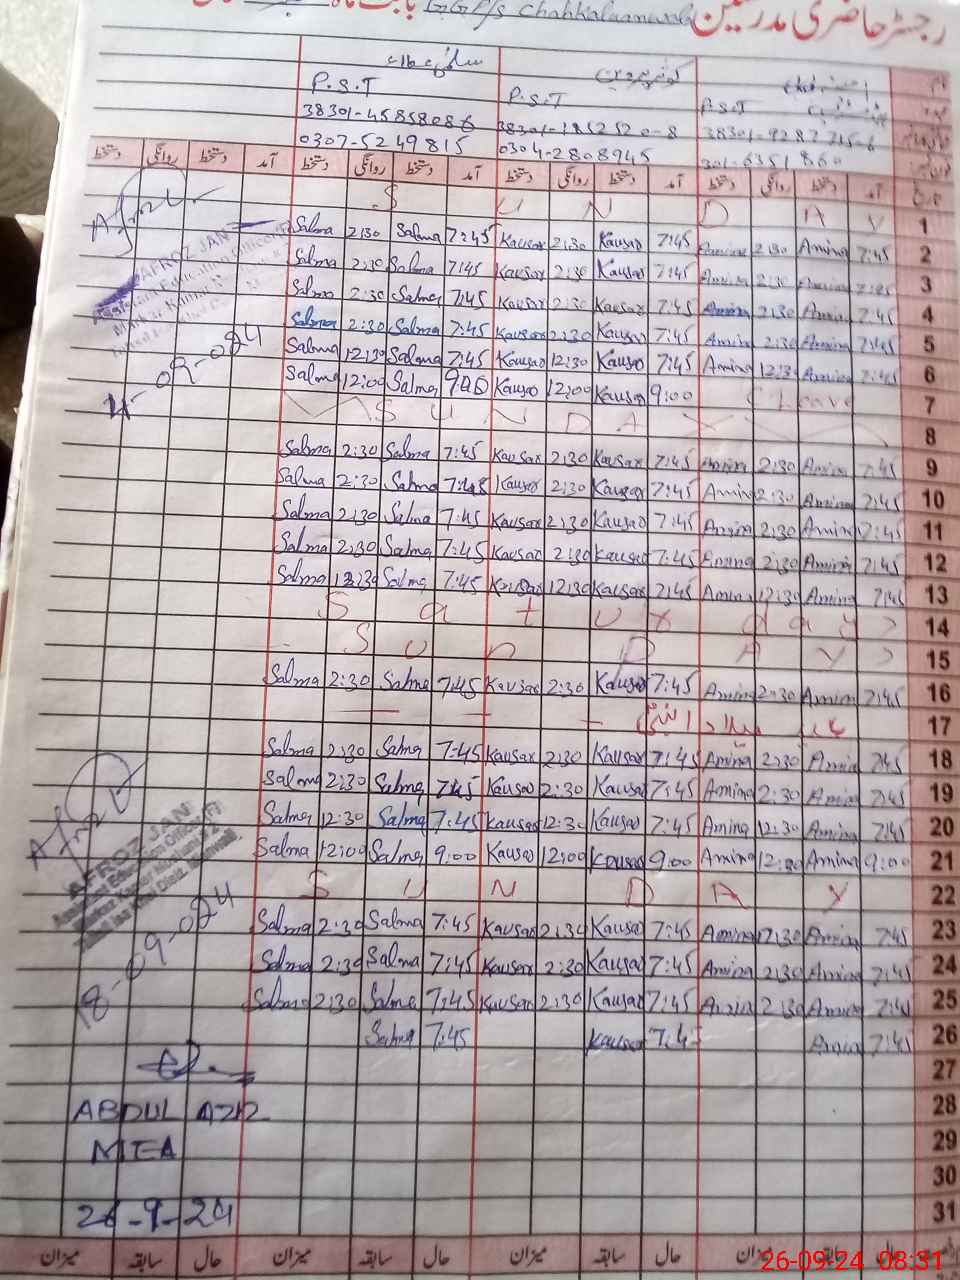 رجسٹر حاضری مدرسین GGPS Chahkalaanwala بابت ماہ
نام
کوثر پروین
P.S.T P.S.T P.S.T
38301-4585808-6 38301-1852520-8 38301-9287715-6
0307-5249815 0304-2808945 301-6351860
تاریخ آمد دستخط روانگی دستخط آمد دستخط روانگی دستخط آمد دستخط روانگی دستخط
S U N D A Y 1
Salma 2:30 Salma 7:45 Kausar 2:30 Kausar 7:45 Amina 2:30 Amina 7:45 2
Salma 2:30 Salma 7:45 Kausar 2:30 Kausar 7:45 Amina 2:30 Amina 7:45 3
Salma 2:30 Salma 7:45 Kausar 2:30 Kausar 7:45 Amina 2:30 Amina 7:45 4
Salma 2:30 Salma 7:45 Kausar 2:30 Kausar 7:45 Amina 2:30 Amina 7:45 5
Salma 12:30 Salma 7:45 Kausar 12:30 Kausar 7:45 Amina 12:30 Amina 7:45 6
Salma 12:00 Salma 9:00 Kausar 12:00 Kausar 9:00 C Leave 7
S U N D A Y 8
Salma 2:30 Salma 7:45 Kausar 2:30 Kausar 7:45 Amina 2:30 Amina 7:45 9
Salma 2:30 Salma 7:45 Kausar 2:30 Kausar 7:45 Amina 2:30 Amina 7:45 10
Salma 2:30 Salma 7:45 Kausar 2:30 Kausar 7:45 Amina 2:30 Amina 7:45 11
Salma 2:30 Salma 7:45 Kausar 2:30 Kausar 7:45 Amina 2:30 Amina 7:45 12
Salma 12:30 Salma 7:45 Kausar 12:30 Kausar 7:45 Amina 12:30 Amina 7:45 13
S a t u r d a y 14
S u n D A Y 15
Salma 2:30 Salma 7:45 Kausar 2:30 Kausar 7:45 Amina 2:30 Amina 7:45 16
عید میلاد النبیؐ 17
Salma 2:30 Salma 7:45 Kausar 2:30 Kausar 7:45 Amina 2:30 Amina 7:45 18
Salma 2:30 Salma 7:45 Kausar 2:30 Kausar 7:45 Amina 2:30 Amina 7:45 19
Salma 12:30 Salma 7:45 Kausar 12:30 Kausar 7:45 Amina 12:30 Amina 7:45 20
Salma 12:00 Salma 9:00 Kausar 12:00 Kausar 9:00 Amina 12:00 Amina 9:00 21
S U N D A Y 22
Salma 2:30 Salma 7:45 Kausar 2:30 Kausar 7:45 Amina 2:30 Amina 7:45 23
Salma 2:30 Salma 7:45 Kausar 2:30 Kausar 7:45 Amina 2:30 Amina 7:45 24
Salma 2:30 Salma 7:45 Kausar 2:30 Kausar 7:45 Amina 2:30 Amina 7:45 25
Salma 7:45 Kausar 7:45 Amina 7:45 26
27
28
29
30
31
AFROZ JAN
Assistant Education Officer (F)
11-09-024
AFROZ JAN
Assistant Education Officer (F)
18-09-024
ABDUL AZIZ
MEA
26-9-24
حال سابقہ میزان حال سابقہ میزان حال سابقہ میزان
26-09-24 08:31